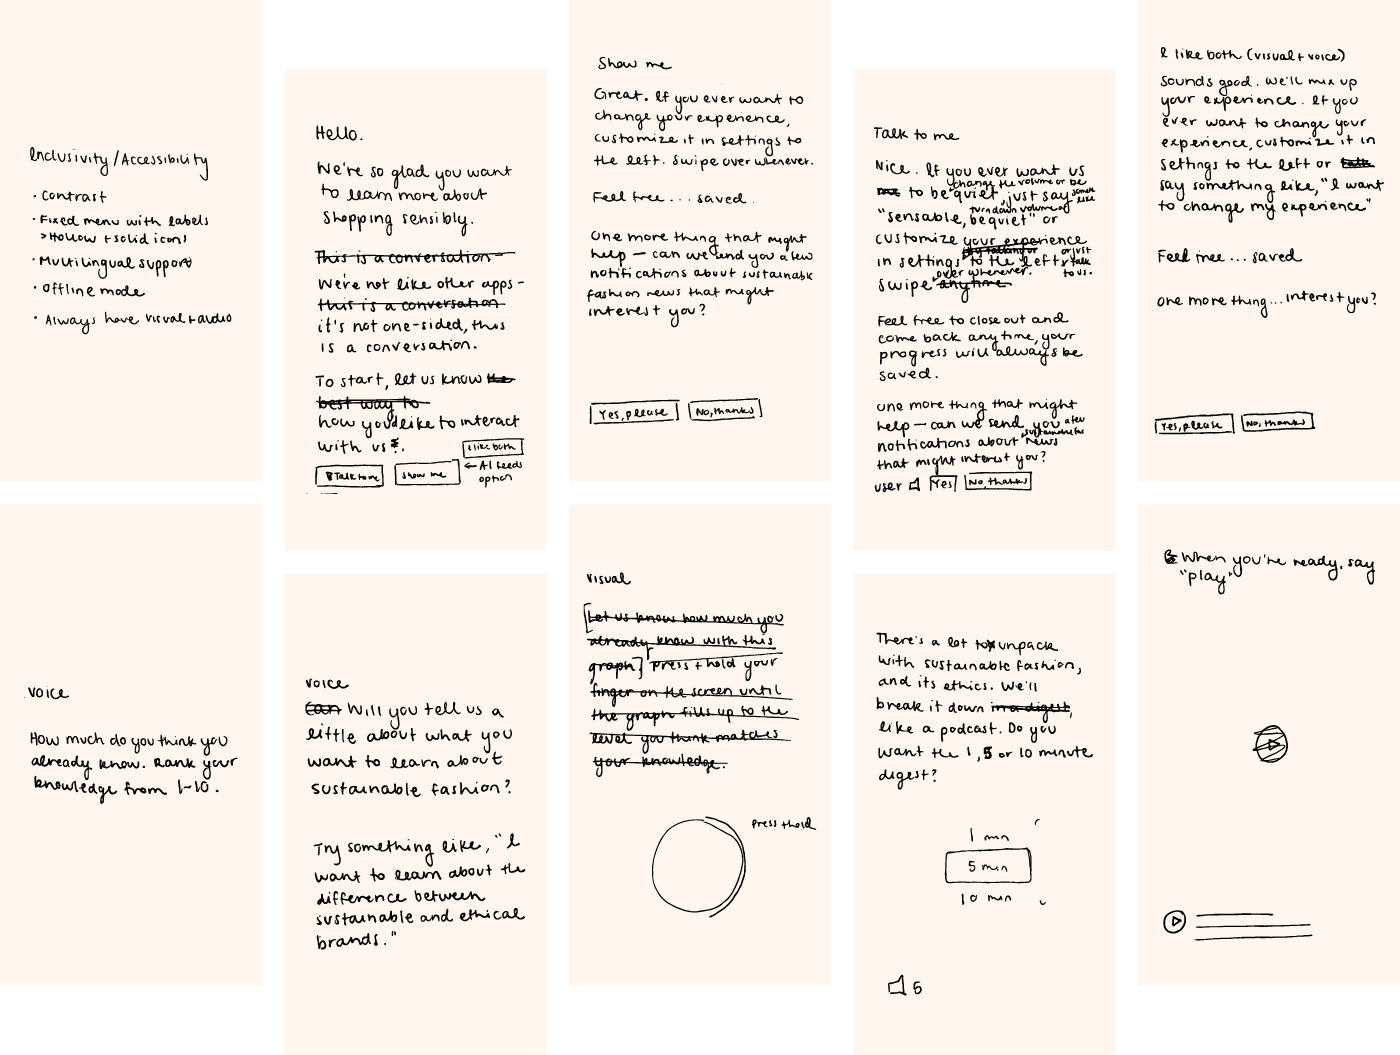 Inclusivity/Accessibility
· Contrast
· Fixed menu with labels
> Hollow + solid icons
· Multilingual support
· Offline mode
· Always have visual + audio
Hello.
We're so glad you want
to learn more about
shopping sensibly.
This is a conversation
We're not like other apps -
this is a conversation
it's not one-sided, this
is a conversation.
To start, let us know the
best way to
how you'd like to interact
with us.
I like both
Talk to me
Show me
← AI feeds
option
Show me
Great. If you ever want to
change your experience,
customize it in settings to
the left. Swipe over whenever.
Feel free ... saved.
One more thing that might
help — can we send you a few
notifications about sustainable
fashion news that might
interest you?
Yes, please
No, thanks
Talk to me
Nice. If you ever want us
change the volume or be
to be quiet, just say some
like
turn down volume of
"sensable, be quiet" or
customize your experience
by talking or
or just
in settings to the left, talk
to us.
over whenever.
swipe anytime.
Feel free to close out and
come back anytime, your
progress will always be
saved.
One more thing that might
help — can we send you a few
sustainable
notifications about news
that might interest you?
user
Yes
No, thanks
I like both (visual + voice)
Sounds good. We'll mix up
your experience. If you
ever want to change your
experience, customize it in
settings to the left or talk
say something like, "I want
to change my experience"
Feel free ... saved
One more thing ... interest you?
Yes, please
No, thanks
voice
How much do you think you
already know. Rank your
knowledge from 1-10.
voice
Can Will you tell us a
little about what you
want to learn about
sustainable fashion?
Try something like, "I
want to learn about the
difference between
sustainable and ethical
brands."
visual
[Let us know how much you
already know with this
graph.] Press + hold your
finger on the screen until
the graph fills up to the
level you think matches
your knowledge.
Press + hold
There's a lot to unpack
with sustainable fashion,
and its ethics. We'll
break it down in a digest,
like a podcast. Do you
want the 1, 5 or 10 minute
digest?
1 min
5 min
10 min
5
When you're ready, say
"play"